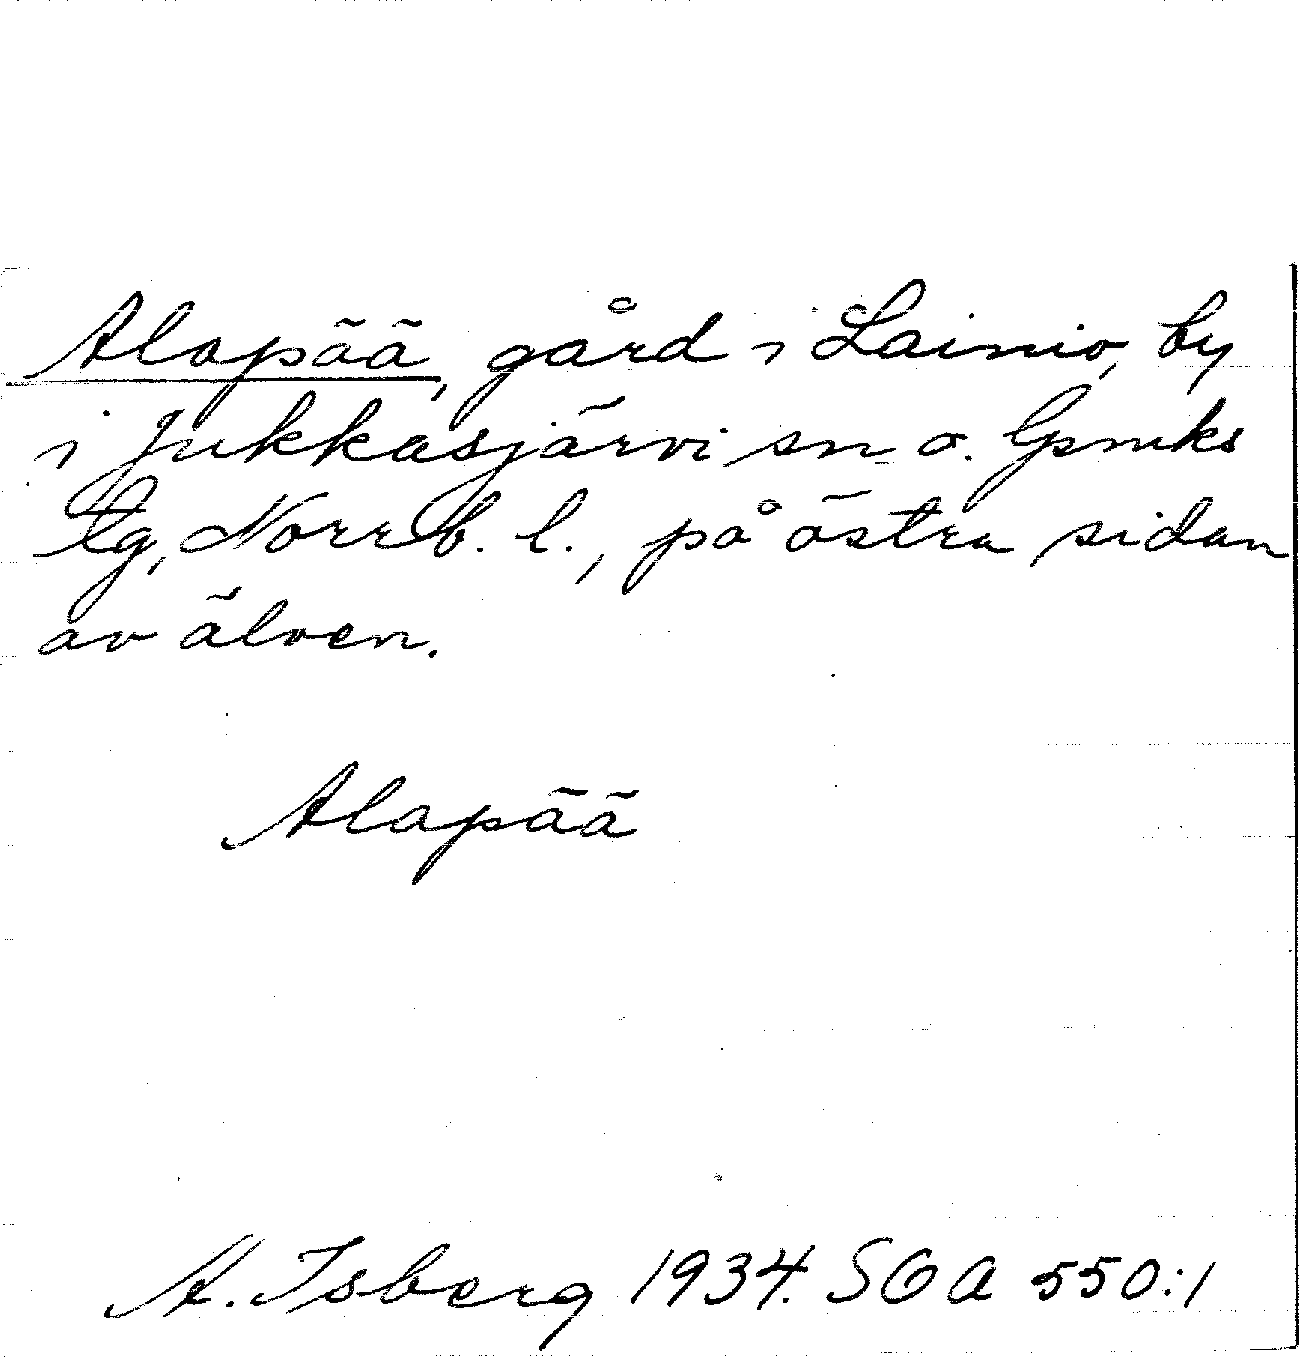 Alapää, gård i Lainio, by
i Jukkasjärvi sn o. Gpmks
tg, Norrb. l., på östra sidan
av älven.
Alapää
A. Isberg 1934. SOA 550:1